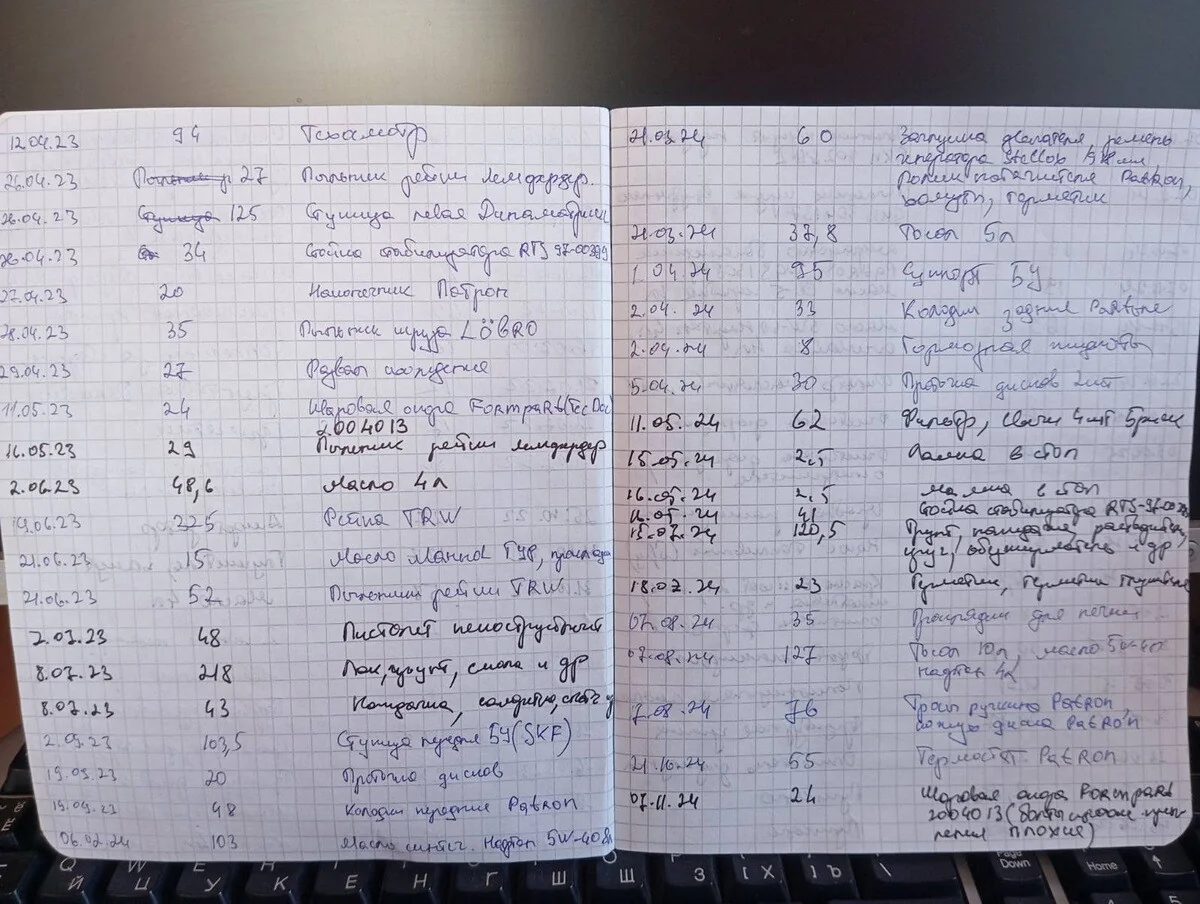 12.04.23 94 Техосмотр
26.04.23 27 Пыльник рейки лемфардер.
26.04.23 Ступица 125 Ступица левая
26.04.23 34 Стойка стабилизатора RTS 97-00399
27.04.23 20 Наконечник Патрон
28.04.23 35 Пыльник шруза LÖBRO
29.04.23 27 Развал схождение
11.05.23 24 Шаровая опора Formpart (TecDoc)
2004013
16.05.23 29 Пыльник рейки лемфардер
2.06.23 48,6 Масло 4л
19.06.23 325 Рейка TRW
21.06.23 15 Масло Mannol ГУР,
21.06.23 52 Пыльники рейки TRW
2.07.23 48 Пистолет пескоструйный
8.07.23 218 Лак, грунт, смола и др
8.07.23 43
2.09.23 103,5 Ступица передняя БУ (SKF)
19.09.23 20 Проточка дисков
19.09.23 48 Колодки передние Patron
06.02.24 103 Масло синтет. Нафтан 5W-40 8л
21.03.24 60 Заглушка двигателя, ремень
генератора Stellox
ролик натяжителя Patron,
хомуты, герметик
21.03.24 37,8 Тосол 5л
1.04.24 95 Суппорт БУ
2.04.24 33 Колодки задние Patron
2.04.24 8 Тормозная жидкость
5.04.24 30 Проточка дисков 2шт
11.05.24 62 Фильтр, свечи 4шт Бриск
15.05.24 2.5 Лампа в стоп
16.05.24 2.5 Лампа в стоп
16.05.24 41 Стойка стабилизатора RTS-97-00
15.07.24 120,5 Грунт,
и др
18.07.24 23 Герметик, герметик
07.08.24 35 для печки
07.08.24 127 Тосол 10л, масло 5w-40
нафтан 4л
7.08.24 76 Тросы ручника Patron,
кожух диска Patron
21.10.24 55 Термостат Patron
07.11.24 24 Шаровая опора Formpart
2004013 (болты
плохие)